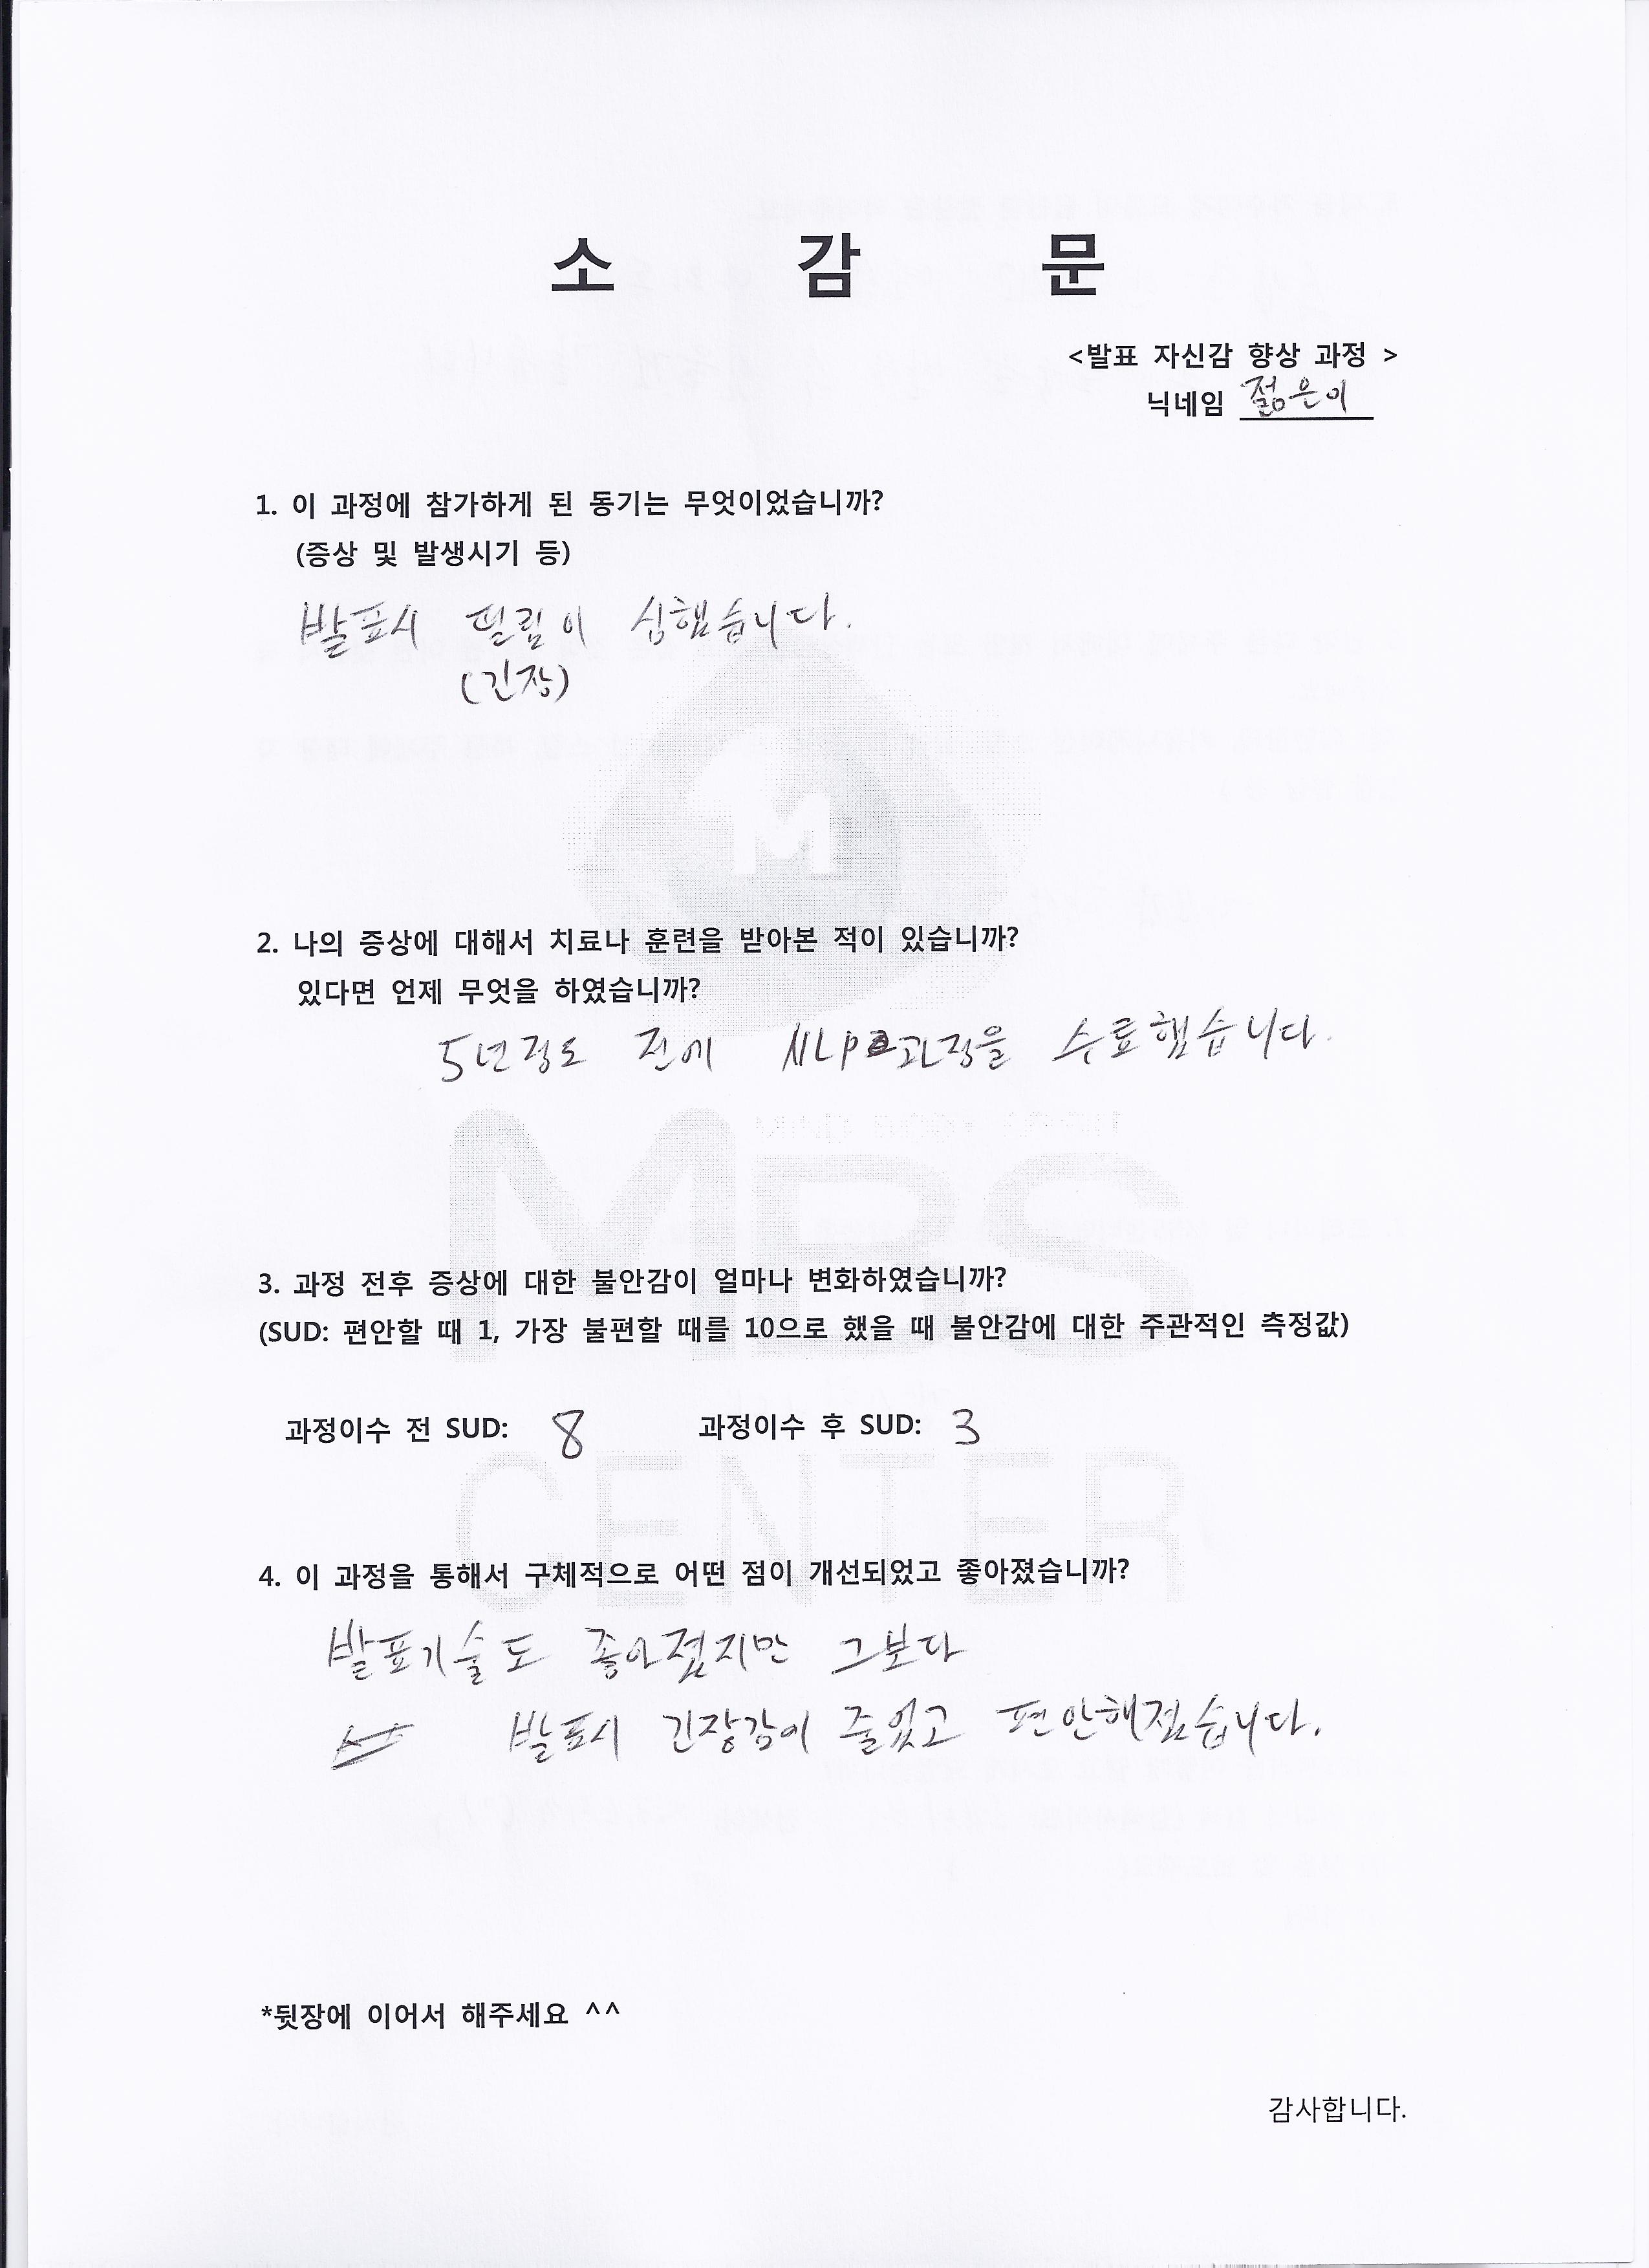 소 감 문
<발표 자신감 향상 과정 >
닉네임 젊은이
1. 이 과정에 참가하게 된 동기는 무엇이었습니까?
(증상 및 발생시기 등)
발표시 떨림이 심했습니다.
(긴장)
M
2. 나의 증상에 대해서 치료나 훈련을 받아본 적이 있습니까?
있다면 언제 무엇을 하였습니까?
5년정도 전에 NLP 과정을 수료했습니다.
MBS
3. 과정 전후 증상에 대한 불안감이 얼마나 변화하였습니까?
(SUD: 편안할 때 1, 가장 불편할 때를 10으로 했을 때 불안감에 대한 주관적인 측정값)
과정이수 전 SUD: 8 과정이수 후 SUD: 3
CENTER
4. 이 과정을 통해서 구체적으로 어떤 점이 개선되었고 좋아졌습니까?
발표기술도 좋아졌지만 그보다
발표시 긴장감이 줄었고 편안해졌습니다.
*뒷장에 이어서 해주세요 ^^
감사합니다.